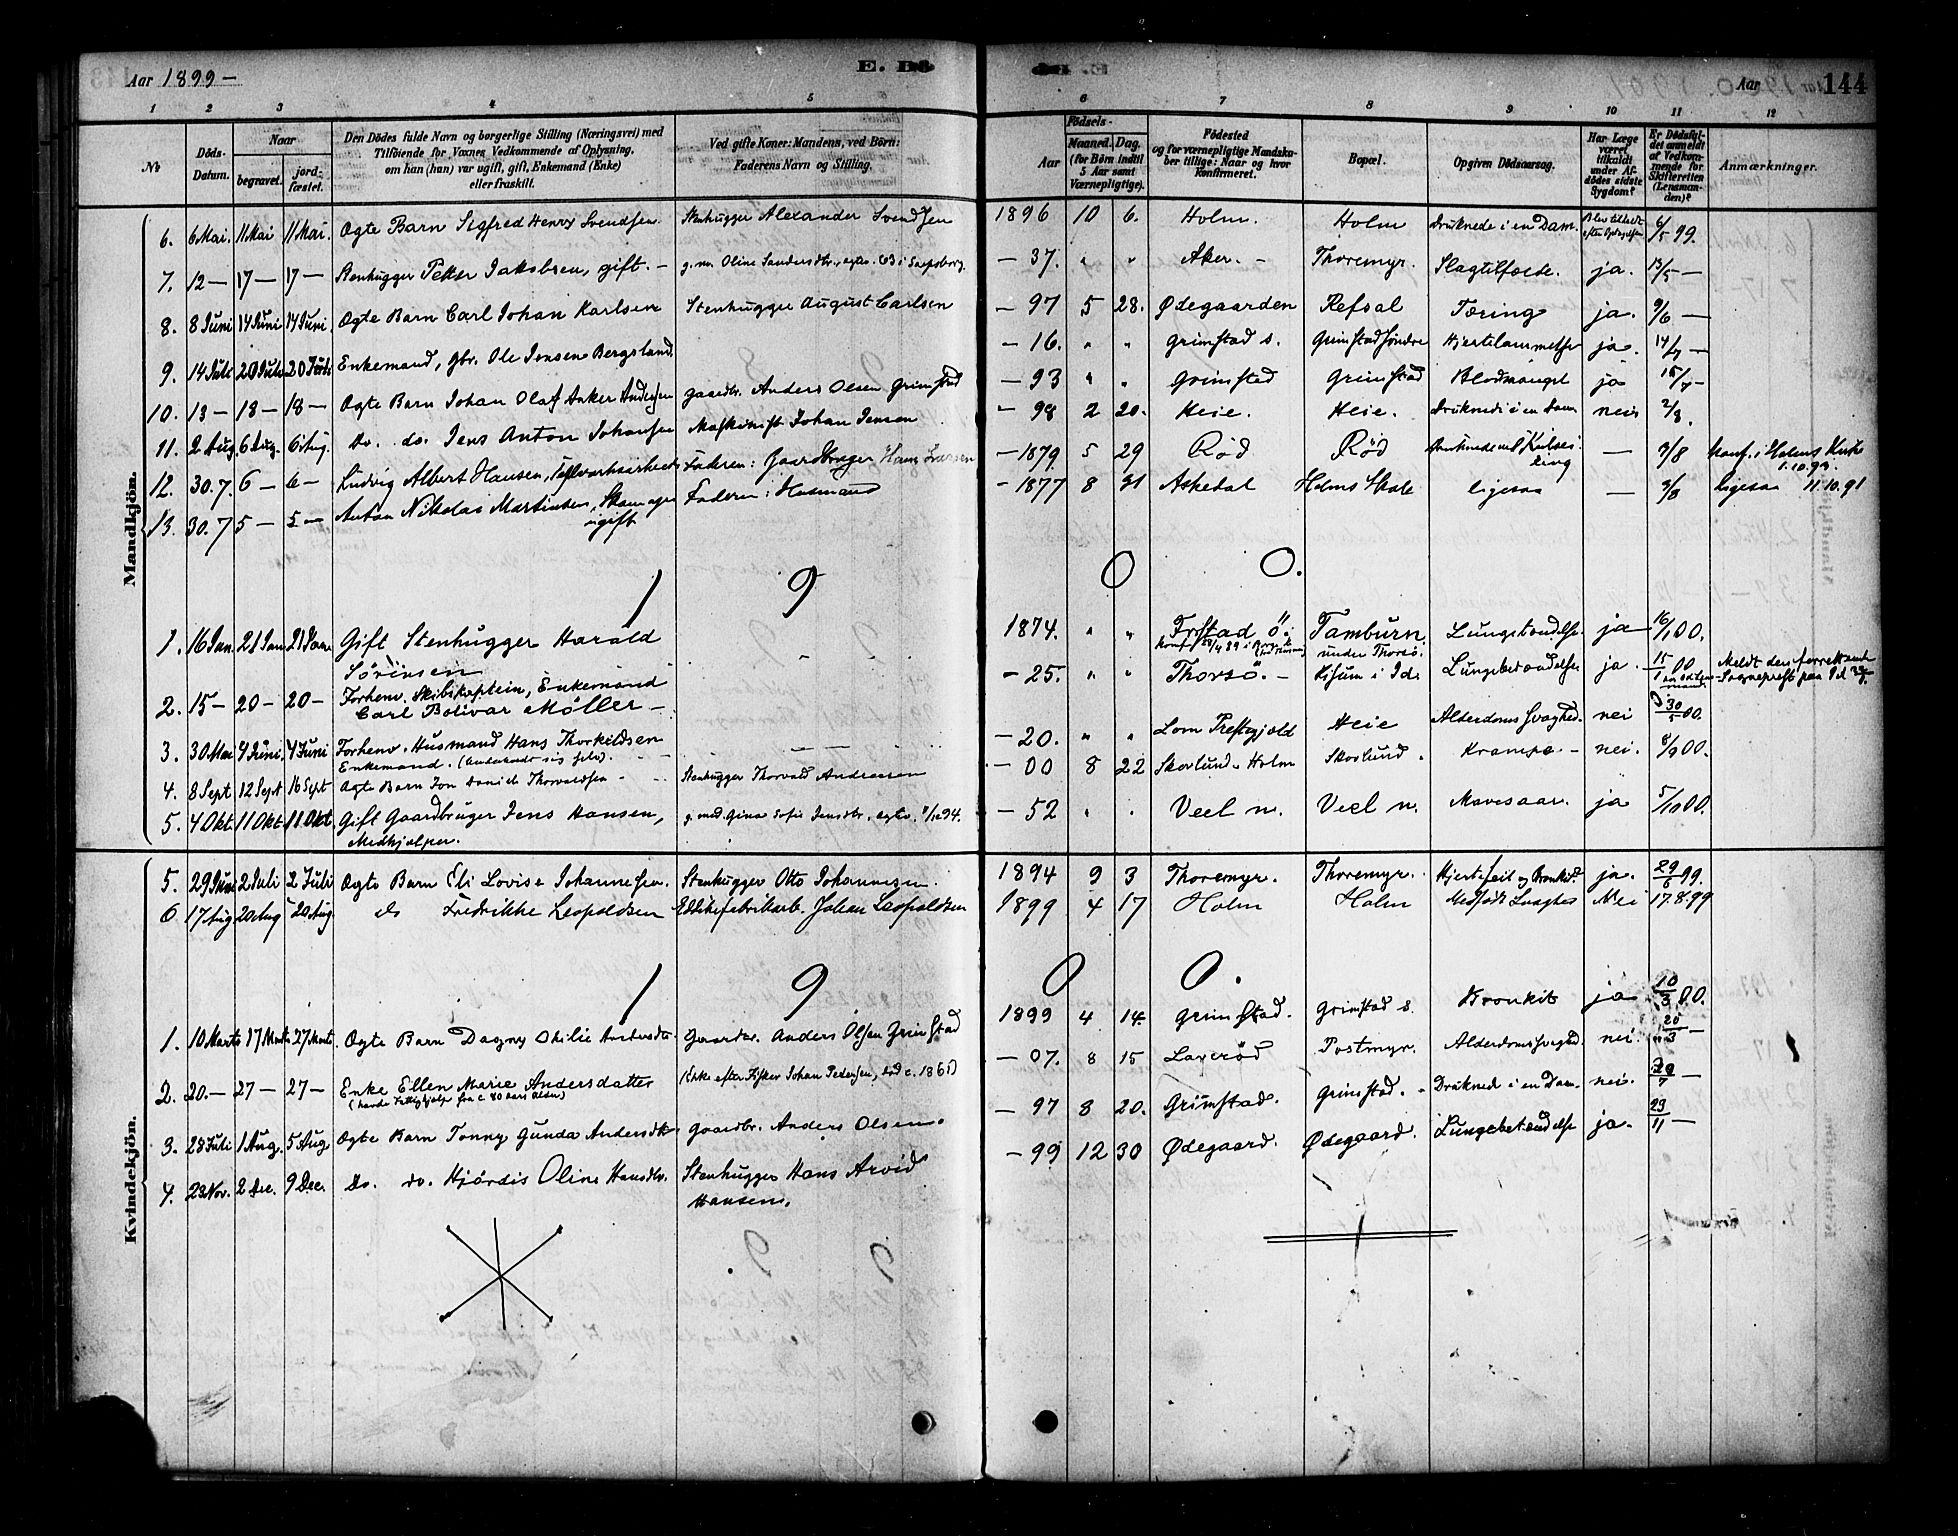 Aar 1899 –
E. Dö
Aar
144
1 2 3 4 5 6 7 8 9 10 11 12
No
Döds-Datum.
Naar
begravet.
jordfæstet.
Den Dödes fulde Navn og borgerlige Stilling (Næringsvei) med
Tilföiende for Voxnes Vedkommende af Oplysning,
om han (hun) var ugift, gift, Enkemand (Enke)
eller fraskilt.
Ved gifte Koner: Mandens, ved Börn:
Faderens Navn og Stilling.
Födsels-
Aar
Maaned. Dag.
(for Börn indtil
5 Aar samt
Værnepligtige).
Födested
og for værnepligtige Mandskaber tillige: Naar og hvor
Konfirmeret.
Bopæl.
Opgiven Dödsaarsag.
Har Læge
været
tilkaldt
under Afdödes sidste
Sygdom?
Er Dödsfaldet anmeldt
af Vedkommende for
Skifteretten
(Lensmanden)?
Anmærkninger.
Mandkjön.
6. 6 Mai 11 Mai 11 Mai. Ægte Barn Sigfred Henry Svendsen. Stenhugger Alexander Svendsen 1896 10 6. Holm. Holm Druknede i en Dam. 6/5 99.
7. 12 – 17 – 17 – Stenhugger Petter Jakobsen, gift. – – 37. " " Aker. – Thoremyr. Slagtilfælde. ja. 13/5 –
8. 8 Juni 14 Juni 14 Juni. Ægte Barn Carl Johan Karlsen Stenhugger August Carlsen – 97 5 28. Ødegaarden Refsal Tæring ja. 9/6 –
9. 14 Juli 20 Juli 20 Juli Enkemand, gbr. Ole Jensen Bergsland. – 16. " " Grimstad s. Grimstad söndre Hjertelammelse ja. 14/7 –
10. 13 – 18 – 18 – Ægte Barn Johan Olaf Anker Andersen gaardbr. Anders Olsen Grimstad – 93 " " Grimstad Grimstad Blodmangel ja 15/7 –
11. 2 Aug 6 Aug. 6 Aug. Do. do. Jens Anton Johansen Maskinist Johan Jensen – 98 2 20. Heie. Heie. Druknede i en Dam nei 2/8.
12. 30.7. 6 – 6 – Ludvig Albert Hansen, Faderen: Gaardbruger Hans – 1879. 5 29 Rød Rød – 3/8 Konf. i Holms Kirke
13. 30.7 5 – 5 – Anton Nikolai Martinsen, Skomager Faderen: Husmand – 1877 8 31 Askedal Holms Skole ligesaa – 3/8 ligesaa 11.10.91
ugift
1 9 0 0.
1. 16 Jan. 21 Jan 21 Jan Gift Stenhugger Harald 1874. " " Tamburn Lungebetændelse. ja 16/1 00.
Sörensen under Thorsö.
2. 15 – 20 – 20 – Forhenv. Skibskaptein, Enkemand – 25. " " Thorsö. – Lungebetændelse ja. 15/1 00
Carl Bolivar Möller –
3. 30 Mai 4 Juni 4 Juni Forhenv. Husmand Hans Thorkildsen – 20. " " Lom Prestegjeld Heie Alderdoms Svaghed. nei 30/5 00.
Enkemand.
4. 8 Sept 12 Sept 16 Sept Ægte Barn Jon Daniel Thorvaldsen – Stenhugger Thorvald Andreasen – 00 8 22 Skovlund u. Holm Skovlund. Krampe – nei. 8/9 00.
5. 4 Okt. 11 Okt. 11 Okt. Gift Gaardbruger Jens Hansen, – 52 " " Veel n. Veel n. Mavesaar. ja 5/10 00.
Medhjælper.
Kvindekjön.
5. 29 Juni 2 Juli 2 Juli Ægte Barn Eli Lovise Johannesen. Stenhugger Otto Johannesen. 1894 9 3 Thoremyr. Thoremyr. Hjertefeil og Bronkit. ja. 29/6 99.
6 17 Aug 20 Aug 20 Aug. do Fredrikke Leopoldsen Eddikefabrikarb. Johan Leopoldsen 1899 4 17 Holm Holm Medfödt Svaghed Nei 17.8.99
1 9 0 0.
1. 10 Marts 17 Marts 27 Marts. Ægte Barn Dagny Othilie Andersdtr. Gaardbr. Anders Olsen Grimstad 1899 4 14. Grimstad. Grimstad s. Bronkit ja 10/3 00.
2. 20. – 27 – 27 – Enke Ellen Marie Andersdatter (Enke efter Fisker Johan Pedersen, död c. 1861) – 07. 8 15 Laxeröd Postmyr. Alderdomssvaghed. nei. 20/3 –
3. 28 Juli 1 Aug. 5 Aug. Ægte Barn Tonny Gunda Andersdtr. gaardbr. Anders Olsen. – 97 8 20. Grimstad. Grimstad. – Druknede i en Dam. nei. 28/7 –
4. 23 Nov. 2 Dec. 9 Dec. Do. do. Hjördis Oline Hansdtr. Stenhugger Hans Arvid – 99 12 30 Ødegaard. Ødegaard. Lungebetændelse ja. 23/11 –
Hansen.